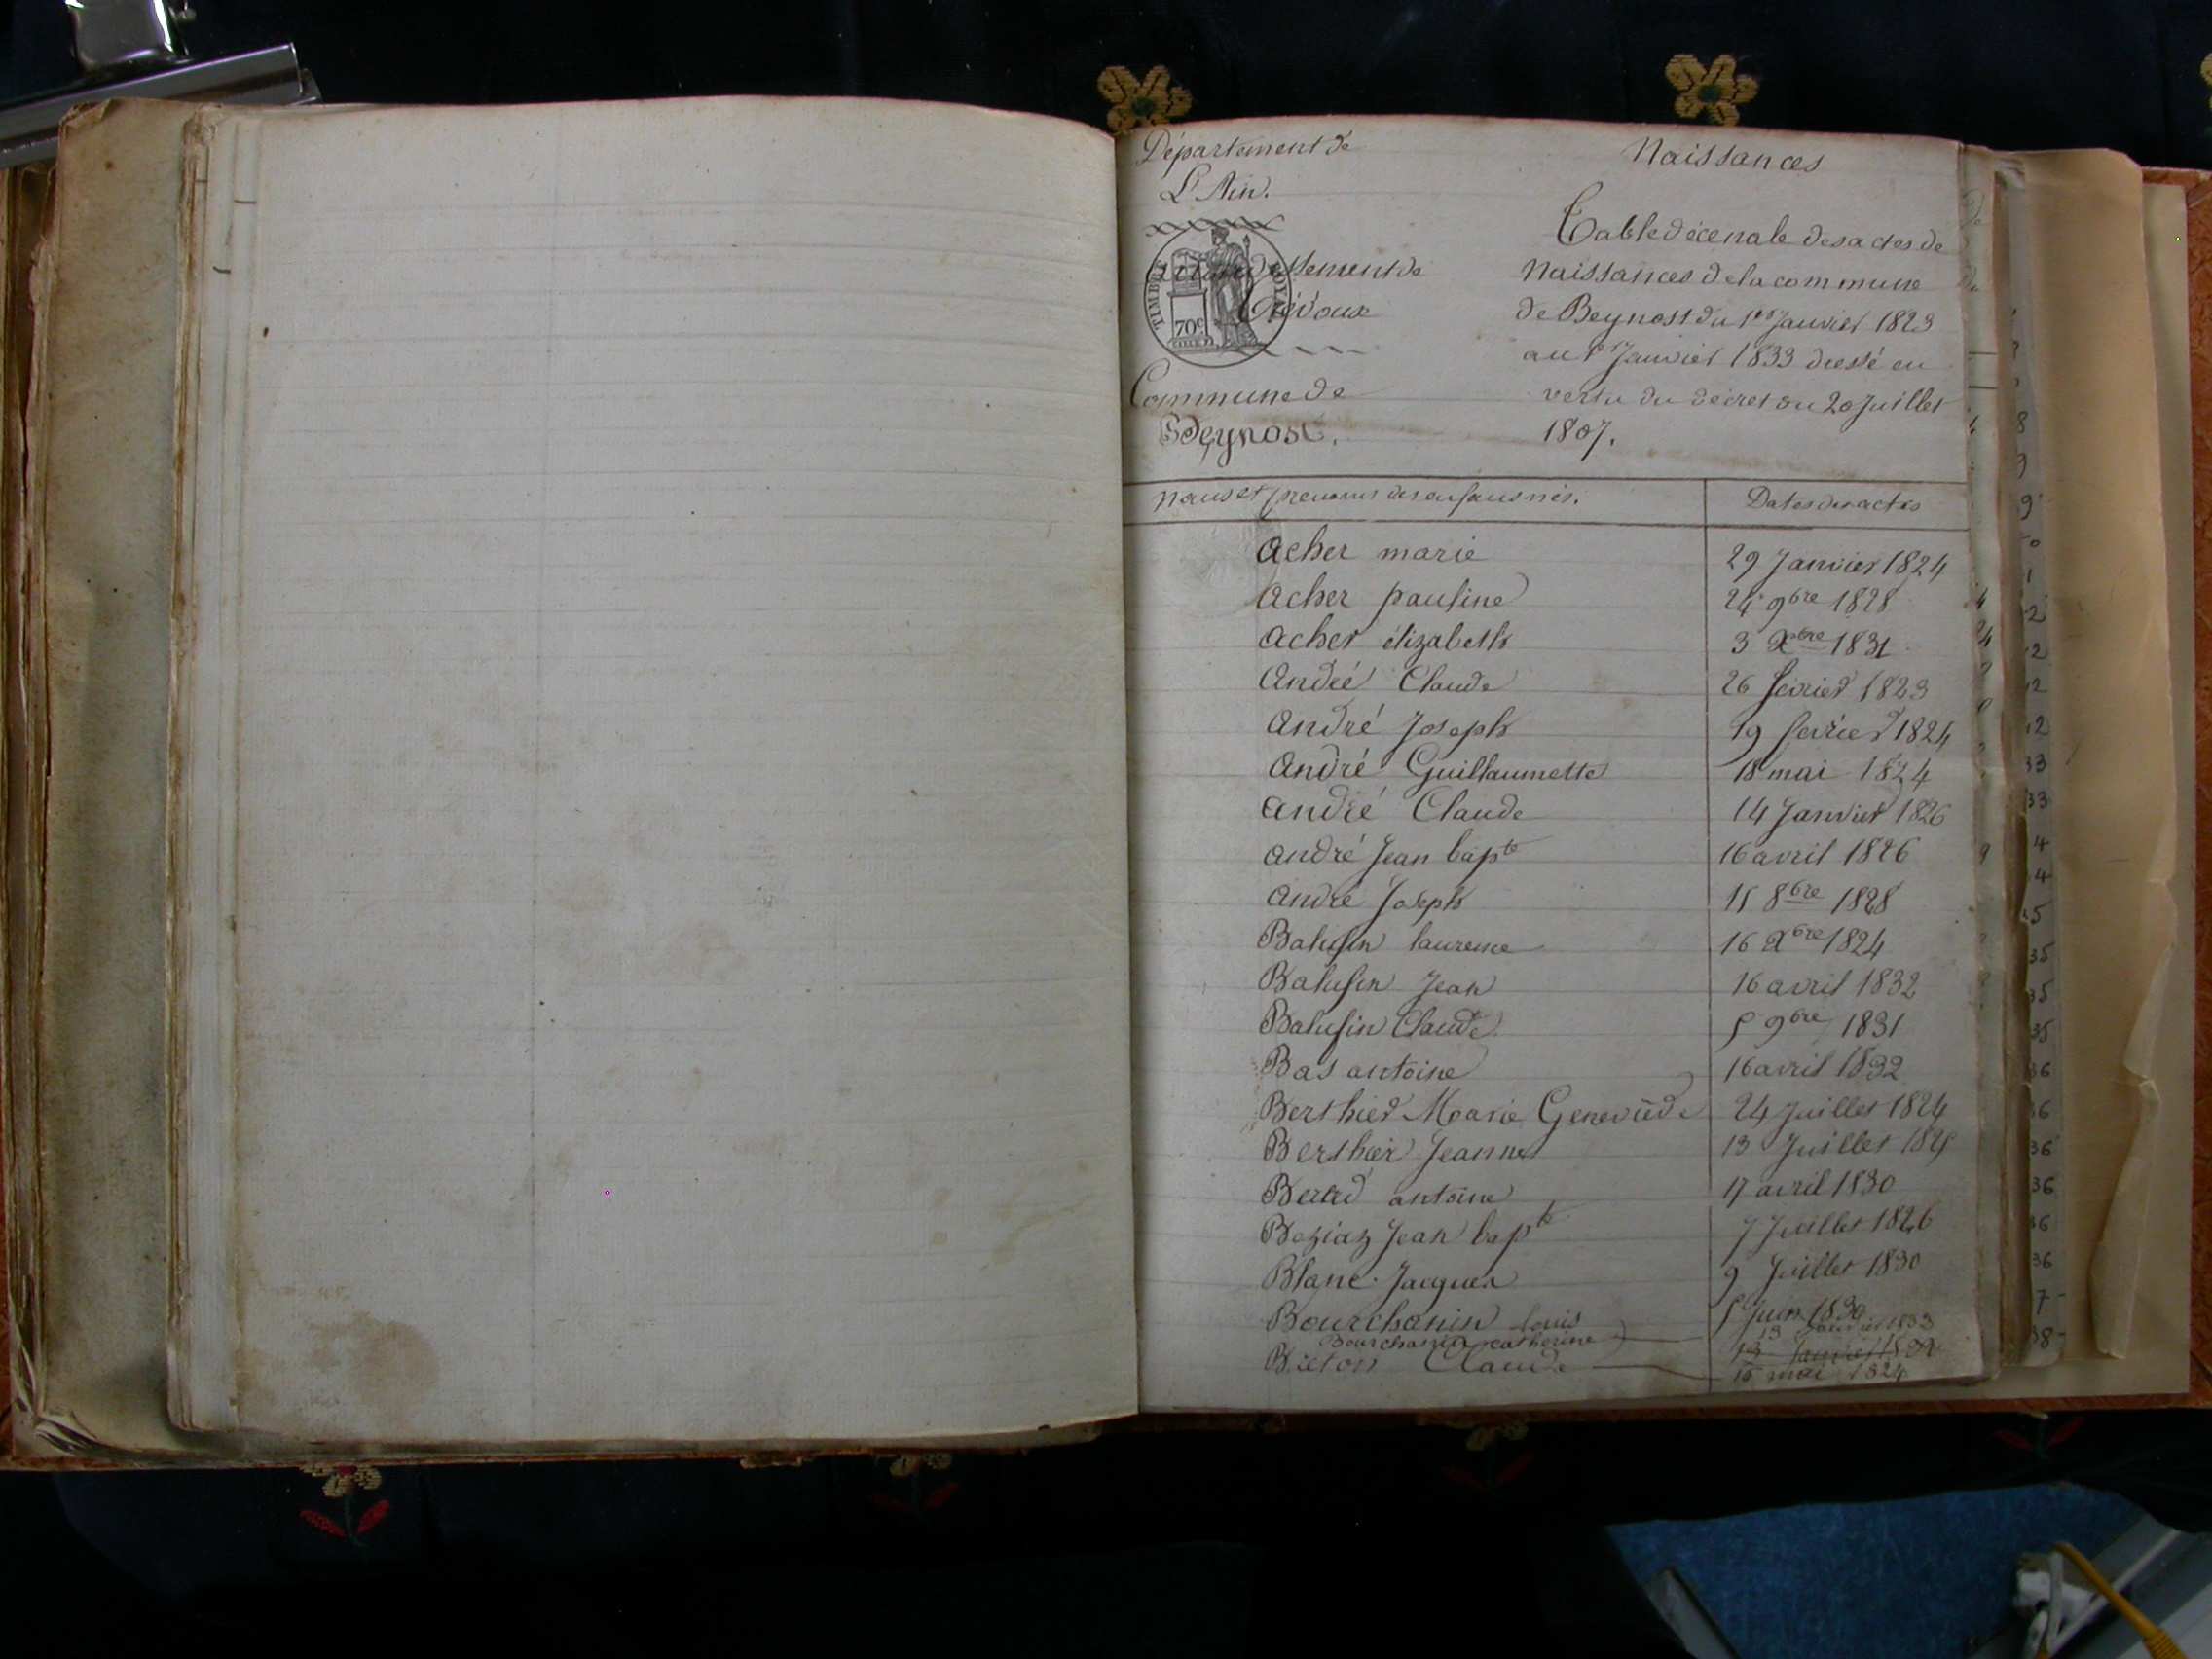 Département de
L'Ain.
Naissances
Table décenale des actes de
Naissances de la commune
de Beynost du 1er Janvier 1823
au 1er Janvier 1833 dressé en
vertu du décret du 20 Juillet
1807.
TIMBRE ROYAL
70c
Arrondissement de
Trévoux
Commune de
Beynost.
noms et prenoms des enfans nés.
Dates des actes
acher marie 29 Janvier 1824
acher pauline 24 9bre 1828
acher élizabeth 3 Xbre 1831
André Claude 26 fevrier 1823
André Joseph 19 fevrier 1824
André Guillaumette 18 mai 1824
André Claude 14 Janvier 1826
andré Jean bapte 16 avril 1826
André Joseph 15 8bre 1828
Balusin laurence 16 Xbre 1824
Balusin Jean 16 avril 1832
Balusin Claude 5 9bre 1831
Bas antoine 16 avril 1832
Berthier Marie Genevieve 24 Juillet 1824
Berthier Jeanne 13 Juillet 1825
antoine 17 avril 1830
Boziaz Jean bapte 7 Juillet 1826
Blanc Jacques 9 Juillet 1830
Bourchanin louis 5 Juin 1830
Bourchanin catherine 13 Janvier 1833
13 Janvier
Breton Claude 15 mai 1824